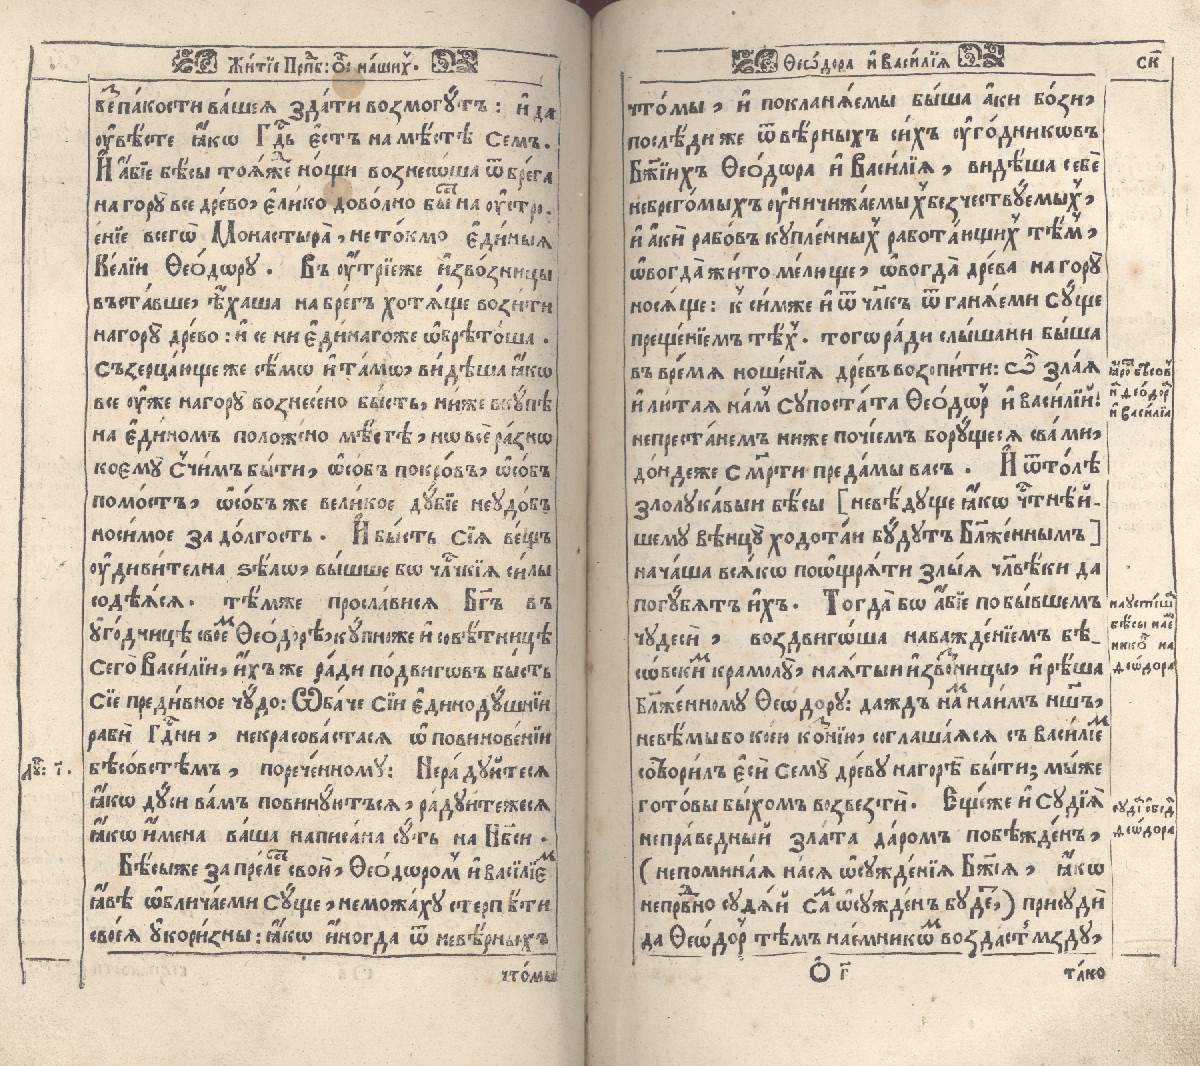 Житїе Прпⷣб: ѻ҃ц наши́хъ.
ве па́кости ва́шеѧ зда́ти возмогу́тъ: и҆ да
ᲂу҆вѣ́сте ꙗ҆́кѡ Гдⷭ҇ь є҆́стъ на мѣ́стѣ Семъ.
И҆ а҆́бїе бѣ́сы тоѧ́же но́щи вознесо́ша ѿ бре́га
на гору̀ все дре́во, є҆ли́ко дово́лно бы́сⷮ на ᲂу҆стро-
є́нїе всегѡ̀ Монастырѧ̀, не то́кмо є҆ди́ныѧ
Ке́лїи Ѳео́дѡру. Въ ᲂу҆́трїе же и҆зво́зницы
въста́вше, ѣ҆́хаша на бре́гъ хотѧ́ще вози́ти
на гору̀ дре́во: и҆ се ни є҆ди́наго же ѡ҆брѣто́ша.
Съзерца́юще же сѣ́мѡ и҆ та́мѡ, ви́дѣша ꙗ҆́кѡ
все ᲂу҆́же на гору̀ вознесе́но бы́сть, ни́же вкꙋ́пѣ
на є҆ди́номъ положе́но мѣ́стѣ, но все ра́знѡ
коемꙋ̀ с̾ чи́мъ бы́ти, ѡ҆со́бъ покро́въ, ѡ҆со́бъ
помо́стъ, ѡ҆со́бъ же вели́кое дꙋ́бїе неудо́бъ
носи́мое за до́лгость. И҆ бы́сть сїѧ̀ ве́щъ
ᲂу҆диви́телна ѕѣ́лѡ, вы́шше бо чл҃чкїѧ си́лы
содѣ́ѧсѧ. тѣ́мже просла́висѧ Бг҃ъ въ
ᲂу҆го́дницѣ свое́мъ Ѳео́дорѣ, кꙋ́пно же и҆ совѣ́тницѣ
Сего̀ Васи́лїи, и҆́хъ же ра́ди по́двигѡвъ бы́сть
Сїѐ преди́вное чꙋ́до: Ѻ҆ба́че Сїи̑ є҆динодꙋ́шнїи
раби̑ Гдⷭ҇ни, некрасова́стасѧ ѡ҆ повинове́нїи
бѣсо́встѣмъ, по рече́нному: Не ра́дуйтесѧ
ꙗ҆́кѡ дꙋ́си ва́мъ повинꙋ́ютъсѧ, ра́дуйте же сѧ
ꙗ҆́кѡ и҆мена̀ ва́ша напи́сана сꙋ́ть на Нб҃си.
Бѣ́сы же за пре́лесть свою̀, Ѳео́дѡромъ и҆ Васи́лїемъ
ꙗ҆́вѣ ѡ҆блича́еми Сꙋ́ще, не можа́ху стерпѣ́ти
своеѧ̀ ᲂу҆кори́зны: ꙗ҆́кѡ и҆ногда̀ ѿ невѣ́рныхъ
что́мы
Лꙋⷦ: і҃.
Ѳео́дора и҆ Васи́лїѧ
ск҃
что́мы, и҆ покланѧ́емы бы́ша а҆́ки бо́зи,
послѣди́ же ѿ вѣ́рныхъ си́хъ ᲂу҆го́дникѡвъ
Бж҃їихъ Ѳео́дѡра и҆ Васи́лїѧ, видѣ́ша себѐ
небрего́мыхъ ᲂу҆ничижа́емыхъ безче́ствꙋемыхъ,
и҆ а҆́ки рабо́въ кꙋпле́нныхъ рабо́тающихъ тѣ́мъ,
ѡ҆вогда̀ жи́то ме́лище, ѡ҆вогда̀ дре́ва на горꙋ̀
носѧ́ще: к̾ си́мже и҆ ѿ чл҃къ ѿганѧ́еми Сꙋ́ще
преще́нїемъ тѣ́хъ. тогѡ̀ ра́ди слы́шани бы́ша
въ вре́мѧ ноше́нїѧ дре́въ вопи́ти: Ѽ зла́ѧ
и҆ лю́таѧ на́мъ Сꙋпоста́та Ѳео́дѡр и҆ Васи́лїй!
непреста́немъ ни́же почі́емъ борꙋ́щесѧ с̾ ва́ми,
до́ндеже См҃рти преда́мы васъ. И҆ ѿто́лѣ
злолука́выи бѣ́сы [невѣ́дꙋще ꙗ҆́кѡ чⷭ҇тнѣ́й-
шему вѣнцꙋ̀ ходота́и бꙋ́дꙋтъ Бл҃же́ннымъ]
нача́ша всѧ́кѡ поѡщрѧ́ти злы́ѧ чл҃вѣ́ки да
погꙋ́бѧтъ и҆́хъ. Тогда́ бо а҆́бїе по бы́вшемъ
чꙋдесѝ, воздвиго́ша наважде́нїемъ бѣ-
со́вскимъ крамо́лꙋ, наѧ́тыи и҆зво́зницы, и҆ рѣ́ша
Бл҃же́нному Ѳео́дору: да́ждъ на́мъ наи́мъ на́шъ,
невѣ́мы бо ко́ею ко́знїю, соглаша́ѧсѧ съ Васи́лїемъ
сотвори́лъ є҆сѝ Семꙋ̀ дре́ву на горѣ̀ бы́ти; мы́ же
гото́вы бы́хомъ возвезтѝ. Е҆ще́ же и҆ Сꙋдїѧ̀
непра́ведный зла́та да́ромъ побѣжде́нъ,
(непомина́ѧ на сѧ̀ ѡ҆сꙋжде́нїѧ Бж҃їѧ, ꙗ҆́кѡ
непра́вⷣно сꙋдѧ́й Са́мъ ѡ҆сꙋжде́нъ бꙋ́детъ,) присꙋдѝ
да Ѳео́доръ тѣ́мъ нае́мникѡмъ возда́стъ мздꙋ̀,
Ѻ҃ г҃
та́ко
сꙋдїѧ̀ ѡ҆сꙋдѝ
Ѳео́дора